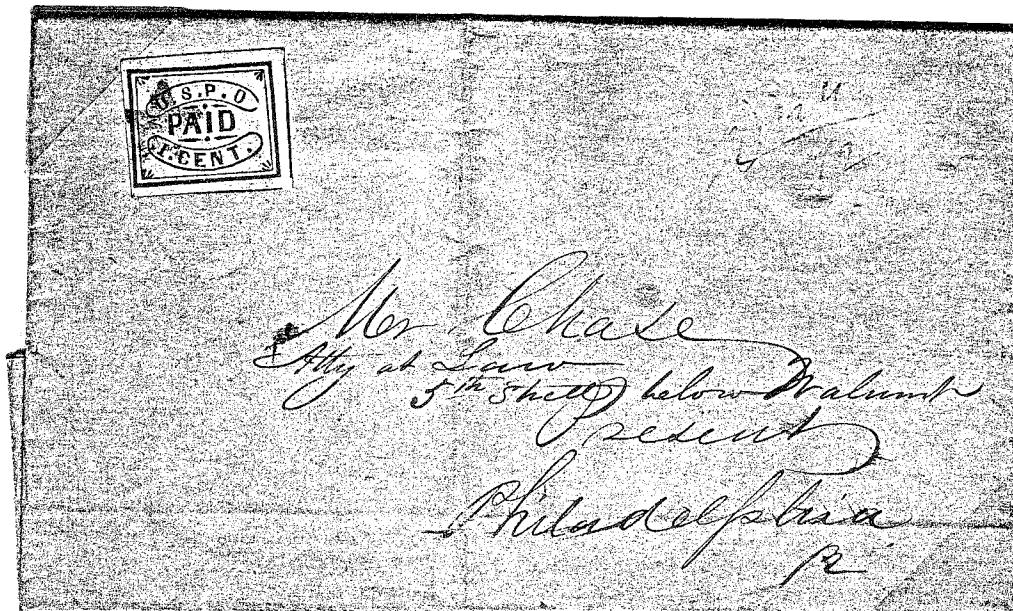 U.S.P.O
PAID
1.CENT.
Mr Chase
Atty at Law
5th Street below Walnut
Present
Philadelphia
Pa